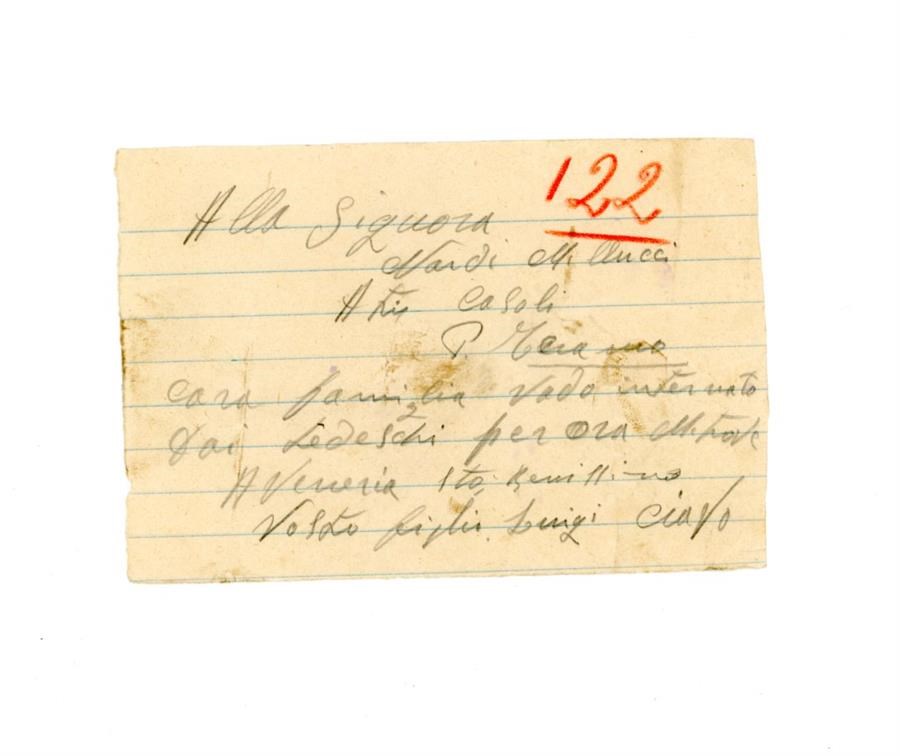 122
Alla Signora
Nardi Millucci
Atri Casoli
P. Teramo
Cara famiglia Vado internato
Dai tedeschi per ora Mi trovo
A Venezia sto Benissimo
Vostro figlio Luigi Ciavo